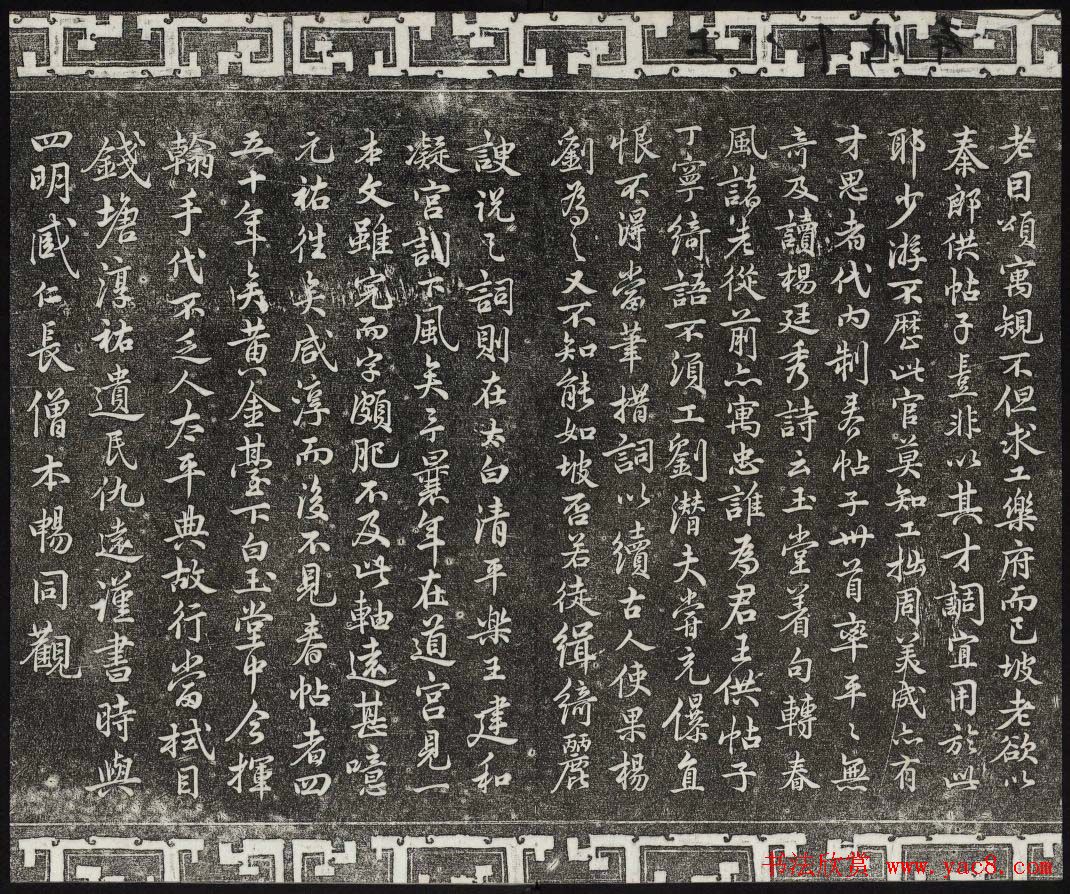 老回頌寓規不但求工樂府而已坡老欲以
秦郎供帖子豈非以其才調宜用於此
耶少游不歷此官莫知工拙周美成亦有
才思者代内制春帖子卅首率平々無
奇及讀楊廷秀詩云玉堂着句轉春
風諸老從前亦寓忠誰為君王供帖子
丁寧綺語不須工劉潛夫嘗充儤直
恨不得當筆措詞以續古人使果楊
劉為之又不知能如坡否若徒緝綺麗
諛説之詞則在太白清平樂王建和
凝宫詞下風矣予曩年在道宫見一
本文雖完而字頗肥不及此軸遠甚噫
元祐徃矣咸淳而後不見春帖者四
五十年矣黄金臺下白玉堂中今揮
翰手代不乏人太平典故行當拭目
錢塘淳祐遺民仇遠謹書時與
四明臧仁長僧本暢同觀
书法欣赏 www.yac8.com